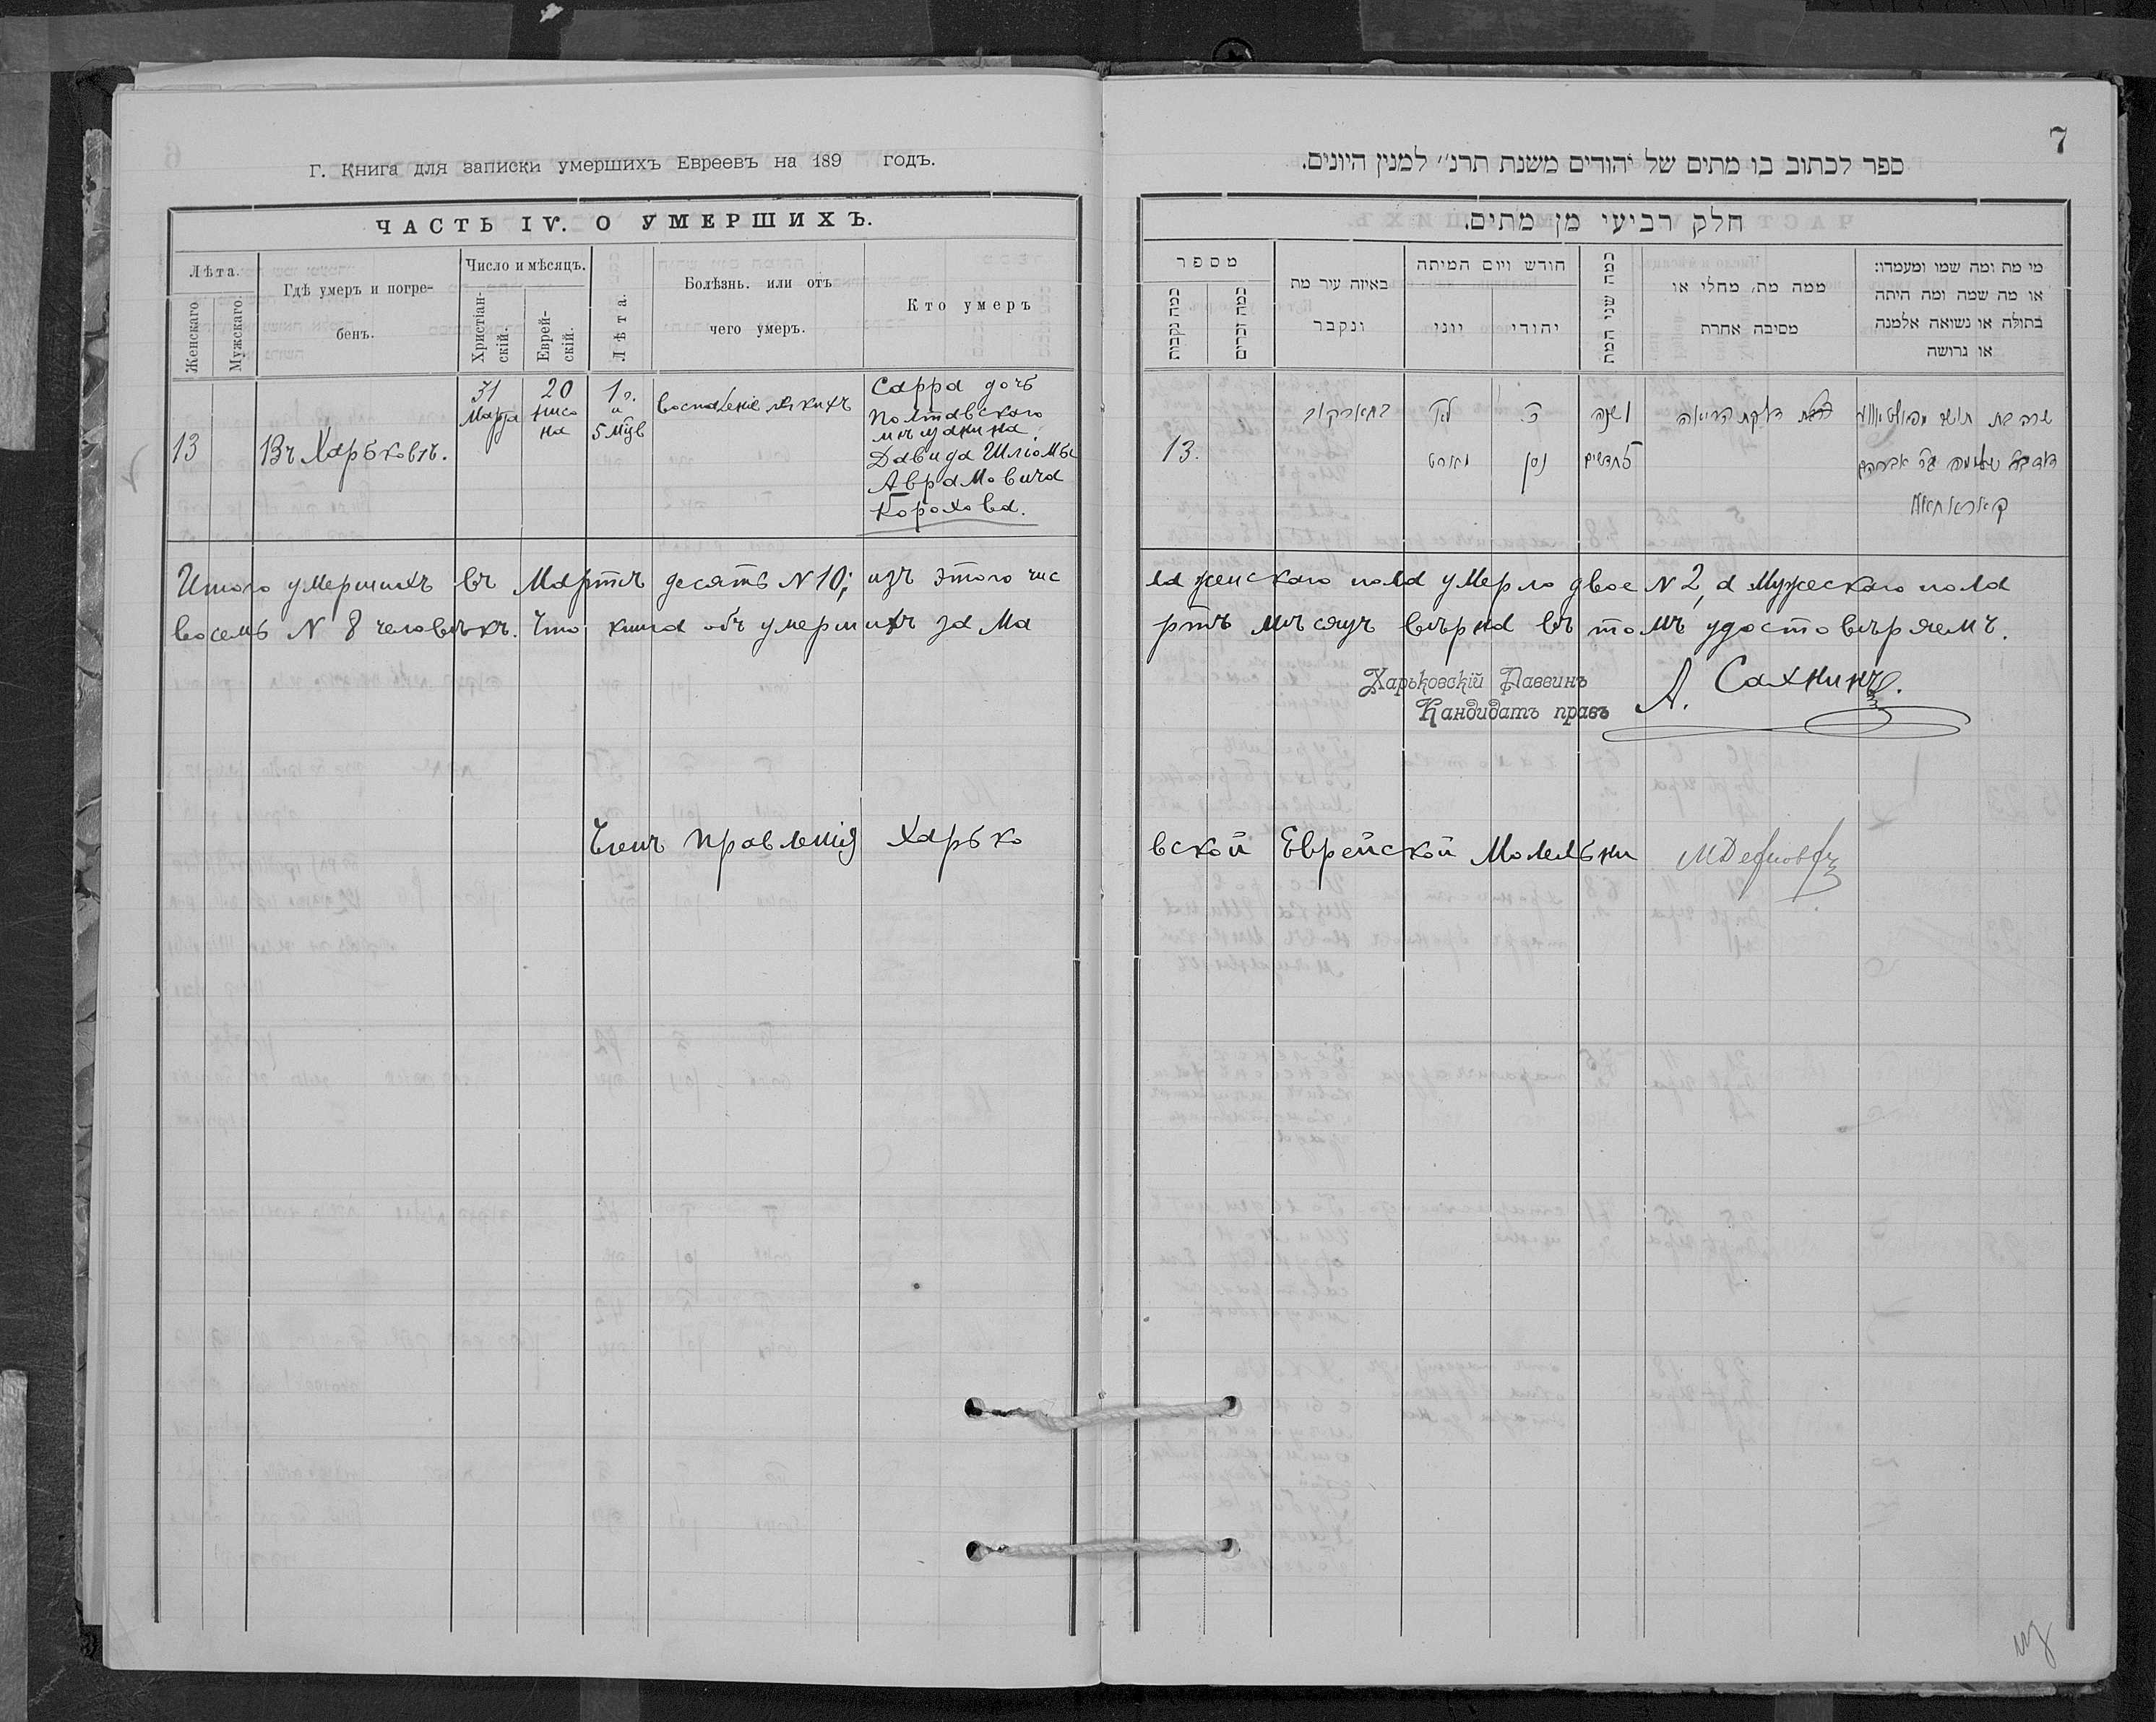 Г. Книга для записки умершихъ Евреевъ на 189 годъ.
ЧАСТЬ IV. О УМЕРШИХЪ.
Лѣта.
Женскаго
Мужскаго.
Гдѣ умеръ и погре-
бенъ.
Число и мѣсяцъ.
Христіан-
скій.
Еврей-
скій.
Лѣта.
Болѣзнь. или отъ
чего умеръ.
Кто умеръ
13
Въ Харьковѣ.
31
Марта
20
нисо
на
1 г.
и
5 мцв
воспаленіе легкихъ
Сарра дочь
Полтавскаго
мѣщанина
Давида Шліомы
Аврамовича
Борохова.
Итого умершихъ въ Мартѣ десять N 10; изъ этого чис
восемь N 8 человѣкъ. Что книга объ умершихъ за Ма
Членъ правленія Харько
7
ספר לכתוב בו מתים של יהודים משנת תרנ״ למנין היונים.
חלק רביעי מן מתים.
מספר
כמה נקבות
כמה זכרים
באיזה עיר מת
ונקבר
חודש ויום המיתה
יוני
יהודי
כמה שני המת
ממה מת, מחלי או
מסיבה אחרת
מי מת ומה שמו ומעמדו:
או מה שמה ומה היתה
בתולה או נשואה אלמנה
או גרושה
13.
בחארקוב
לא
מארט
כ
ניסן
ושנה
חדשים
דלקת הריאה
שרה בת תושב
שלמה אברהם
ла женскаго пола умерло двое N 2, а мужескаго пола
ртъ мѣсяцъ вѣрна въ томъ удостовѣряемъ.
Харьковскій Раввинъ
Кандидатъ правъ
А. Сахнинъ.
вской Еврейской Молельни